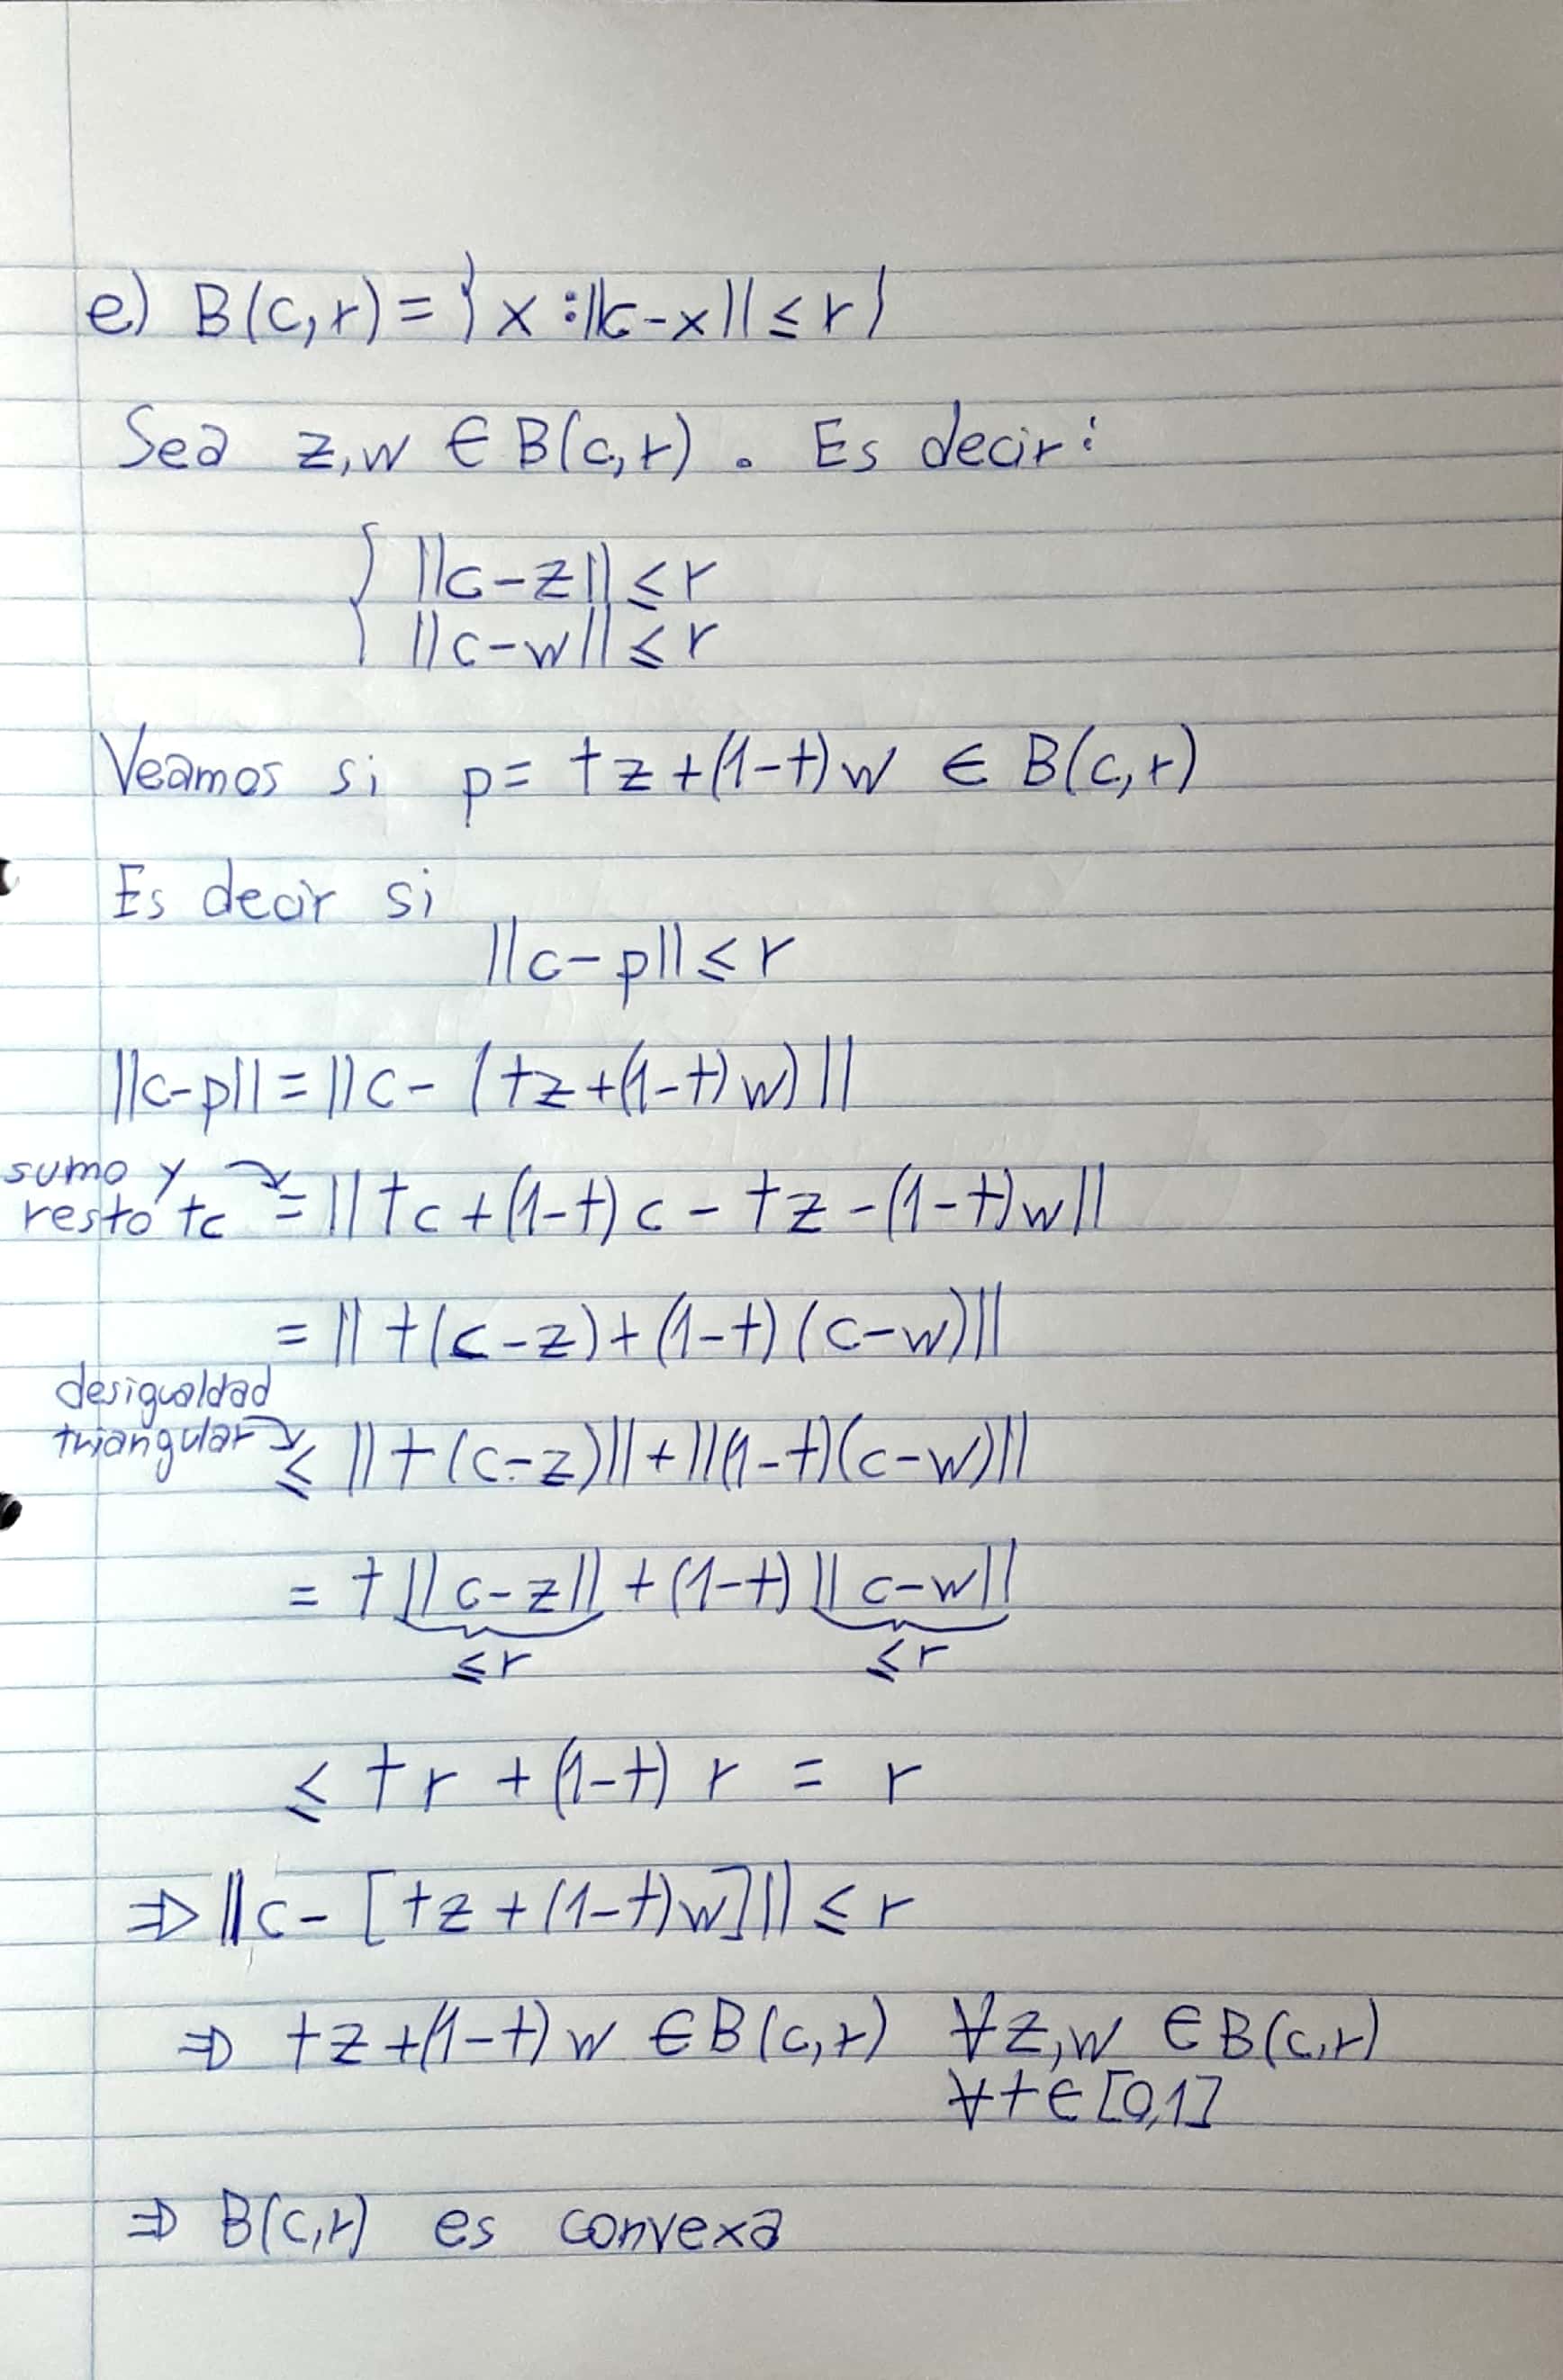 e) B(c,r) = {x : ||c-x|| ≤ r}
Sea z,w ∈ B(c,r). Es decir:
||c-z|| ≤ r
||c-w|| ≤ r
Veamos si p = tz+(1-t)w ∈ B(c,r)
Es decir si
||c-p|| ≤ r
||c-p|| = ||c-(tz+(1-t)w)||
sumo y
resto tc = ||tc+(1-t)c-tz-(1-t)w||
= ||t(c-z)+(1-t)(c-w)||
desigualdad
triangular ≤ ||t(c-z)||+||(1-t)(c-w)||
= t||c-z||+(1-t)||c-w||
≤r ≤r
≤ tr+(1-t)r = r
⇒ ||c-[tz+(1-t)w]|| ≤ r
⇒ tz+(1-t)w ∈ B(c,r) ∀z,w ∈ B(c,r)
∀t∈[0,1]
⇒ B(c,r) es convexa